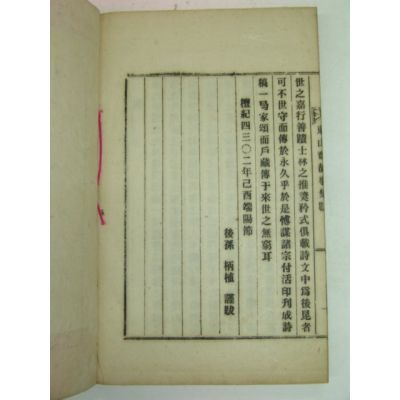 世之嘉行善蹟士林之推奬矜式俱載詩文中爲後昆者
可不世守而傳於永久乎於是愽謀諸宗付活印刊成詩
稿一弓家頌而戶藏傳于來世之無窮耳
檀紀四三〇二年己酉端陽節
後孫 柄植 謹跋